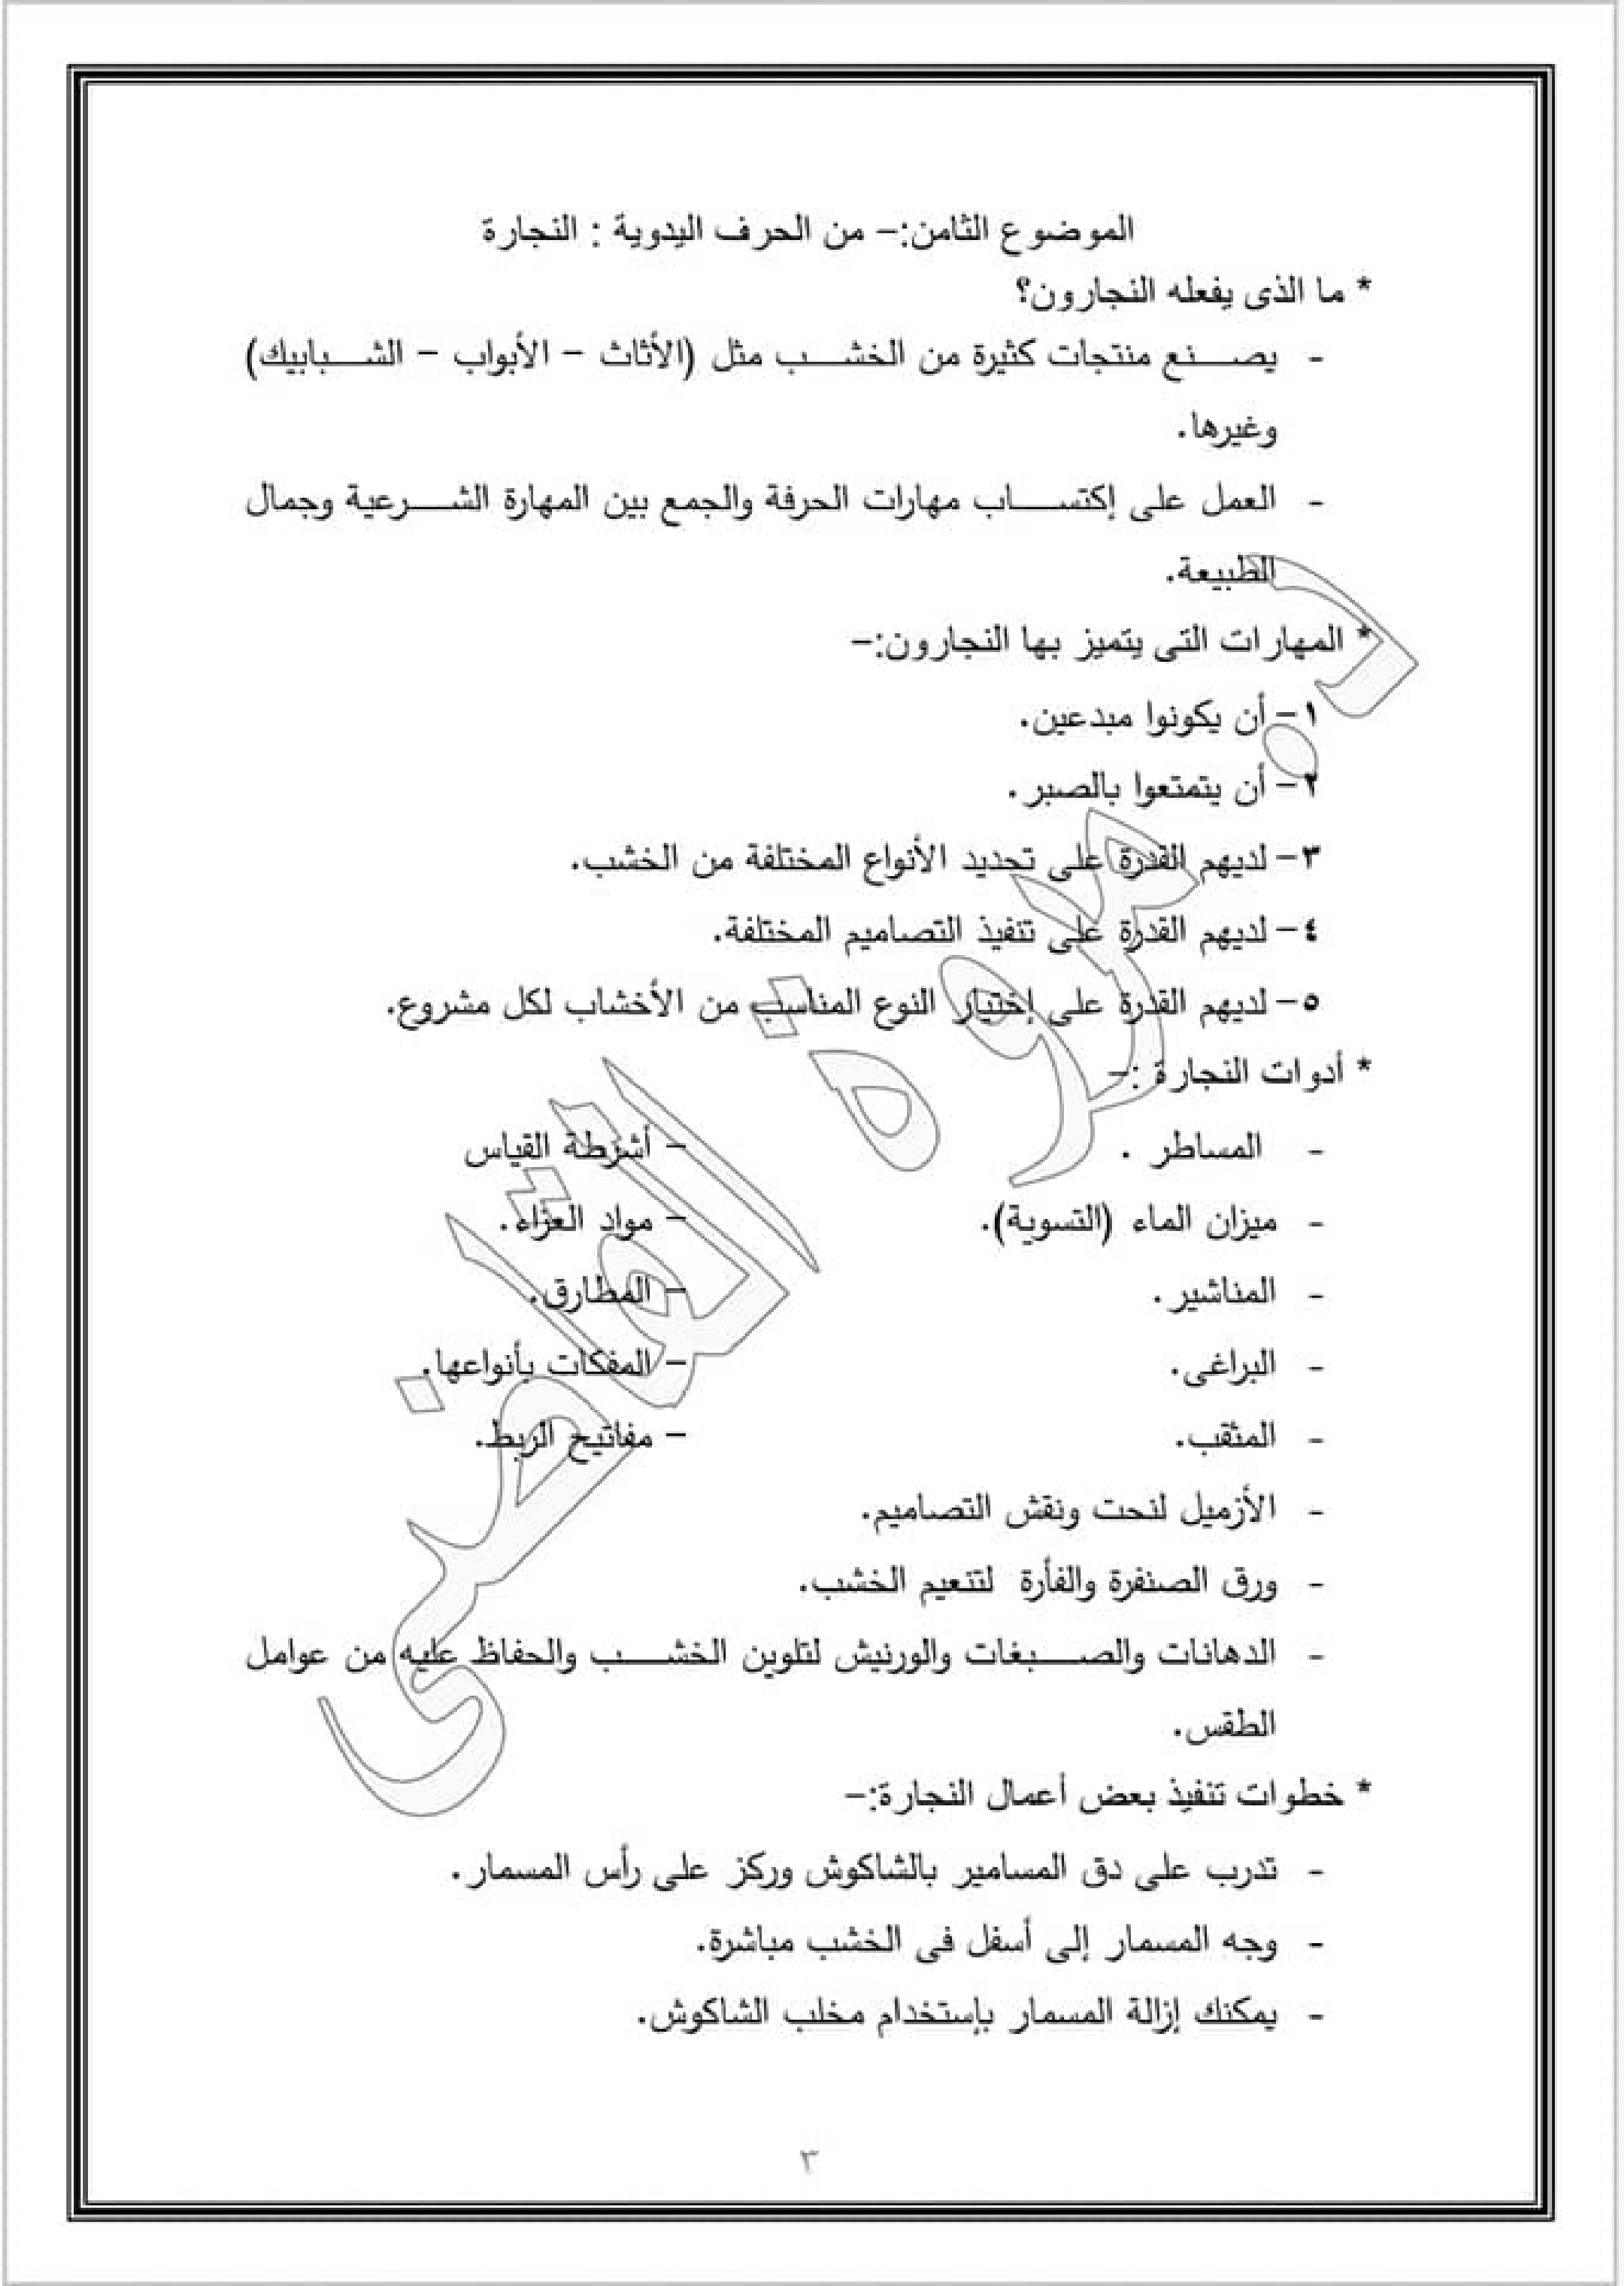 الموضوع الثامن:- من الحرف اليدوية : النجارة
* ما الذى يفعله النجارون؟
- يصنع منتجات كثيرة من الخشب مثل (الأثاث - الأبواب - الشبابيك)
وغيرها.
- العمل على إكتساب مهارات الحرفة والجمع بين المهارة الشرعية وجمال
الطبيعة.
* المهارات التى يتميز بها النجارون:-
١- أن يكونوا مبدعين.
٢- أن يتمتعوا بالصبر.
٣- لديهم القدرة على تحديد الأنواع المختلفة من الخشب.
٤- لديهم القدرة على تنفيذ التصاميم المختلفة.
٥- لديهم القدرة على إختيار النوع المناسب من الأخشاب لكل مشروع.
* أدوات النجارة :-
- المساطر . - أشرطة القياس
- ميزان الماء (التسوية). - مواد الغراء.
- المناشير. - المطارق.
- البراغى. - المفكات بأنواعها.
- المثقب. - مفاتيح الربط.
- الأزميل لنحت ونقش التصاميم.
- ورق الصنفرة والفأرة لتنعيم الخشب.
- الدهانات والصبغات والورنيش لتلوين الخشب والحفاظ عليه من عوامل
الطقس.
* خطوات تنفيذ بعض أعمال النجارة:-
- تدرب على دق المسامير بالشاكوش وركز على رأس المسمار.
- وجه المسمار إلى أسفل فى الخشب مباشرة.
- يمكنك إزالة المسمار بإستخدام مخلب الشاكوش.
٣